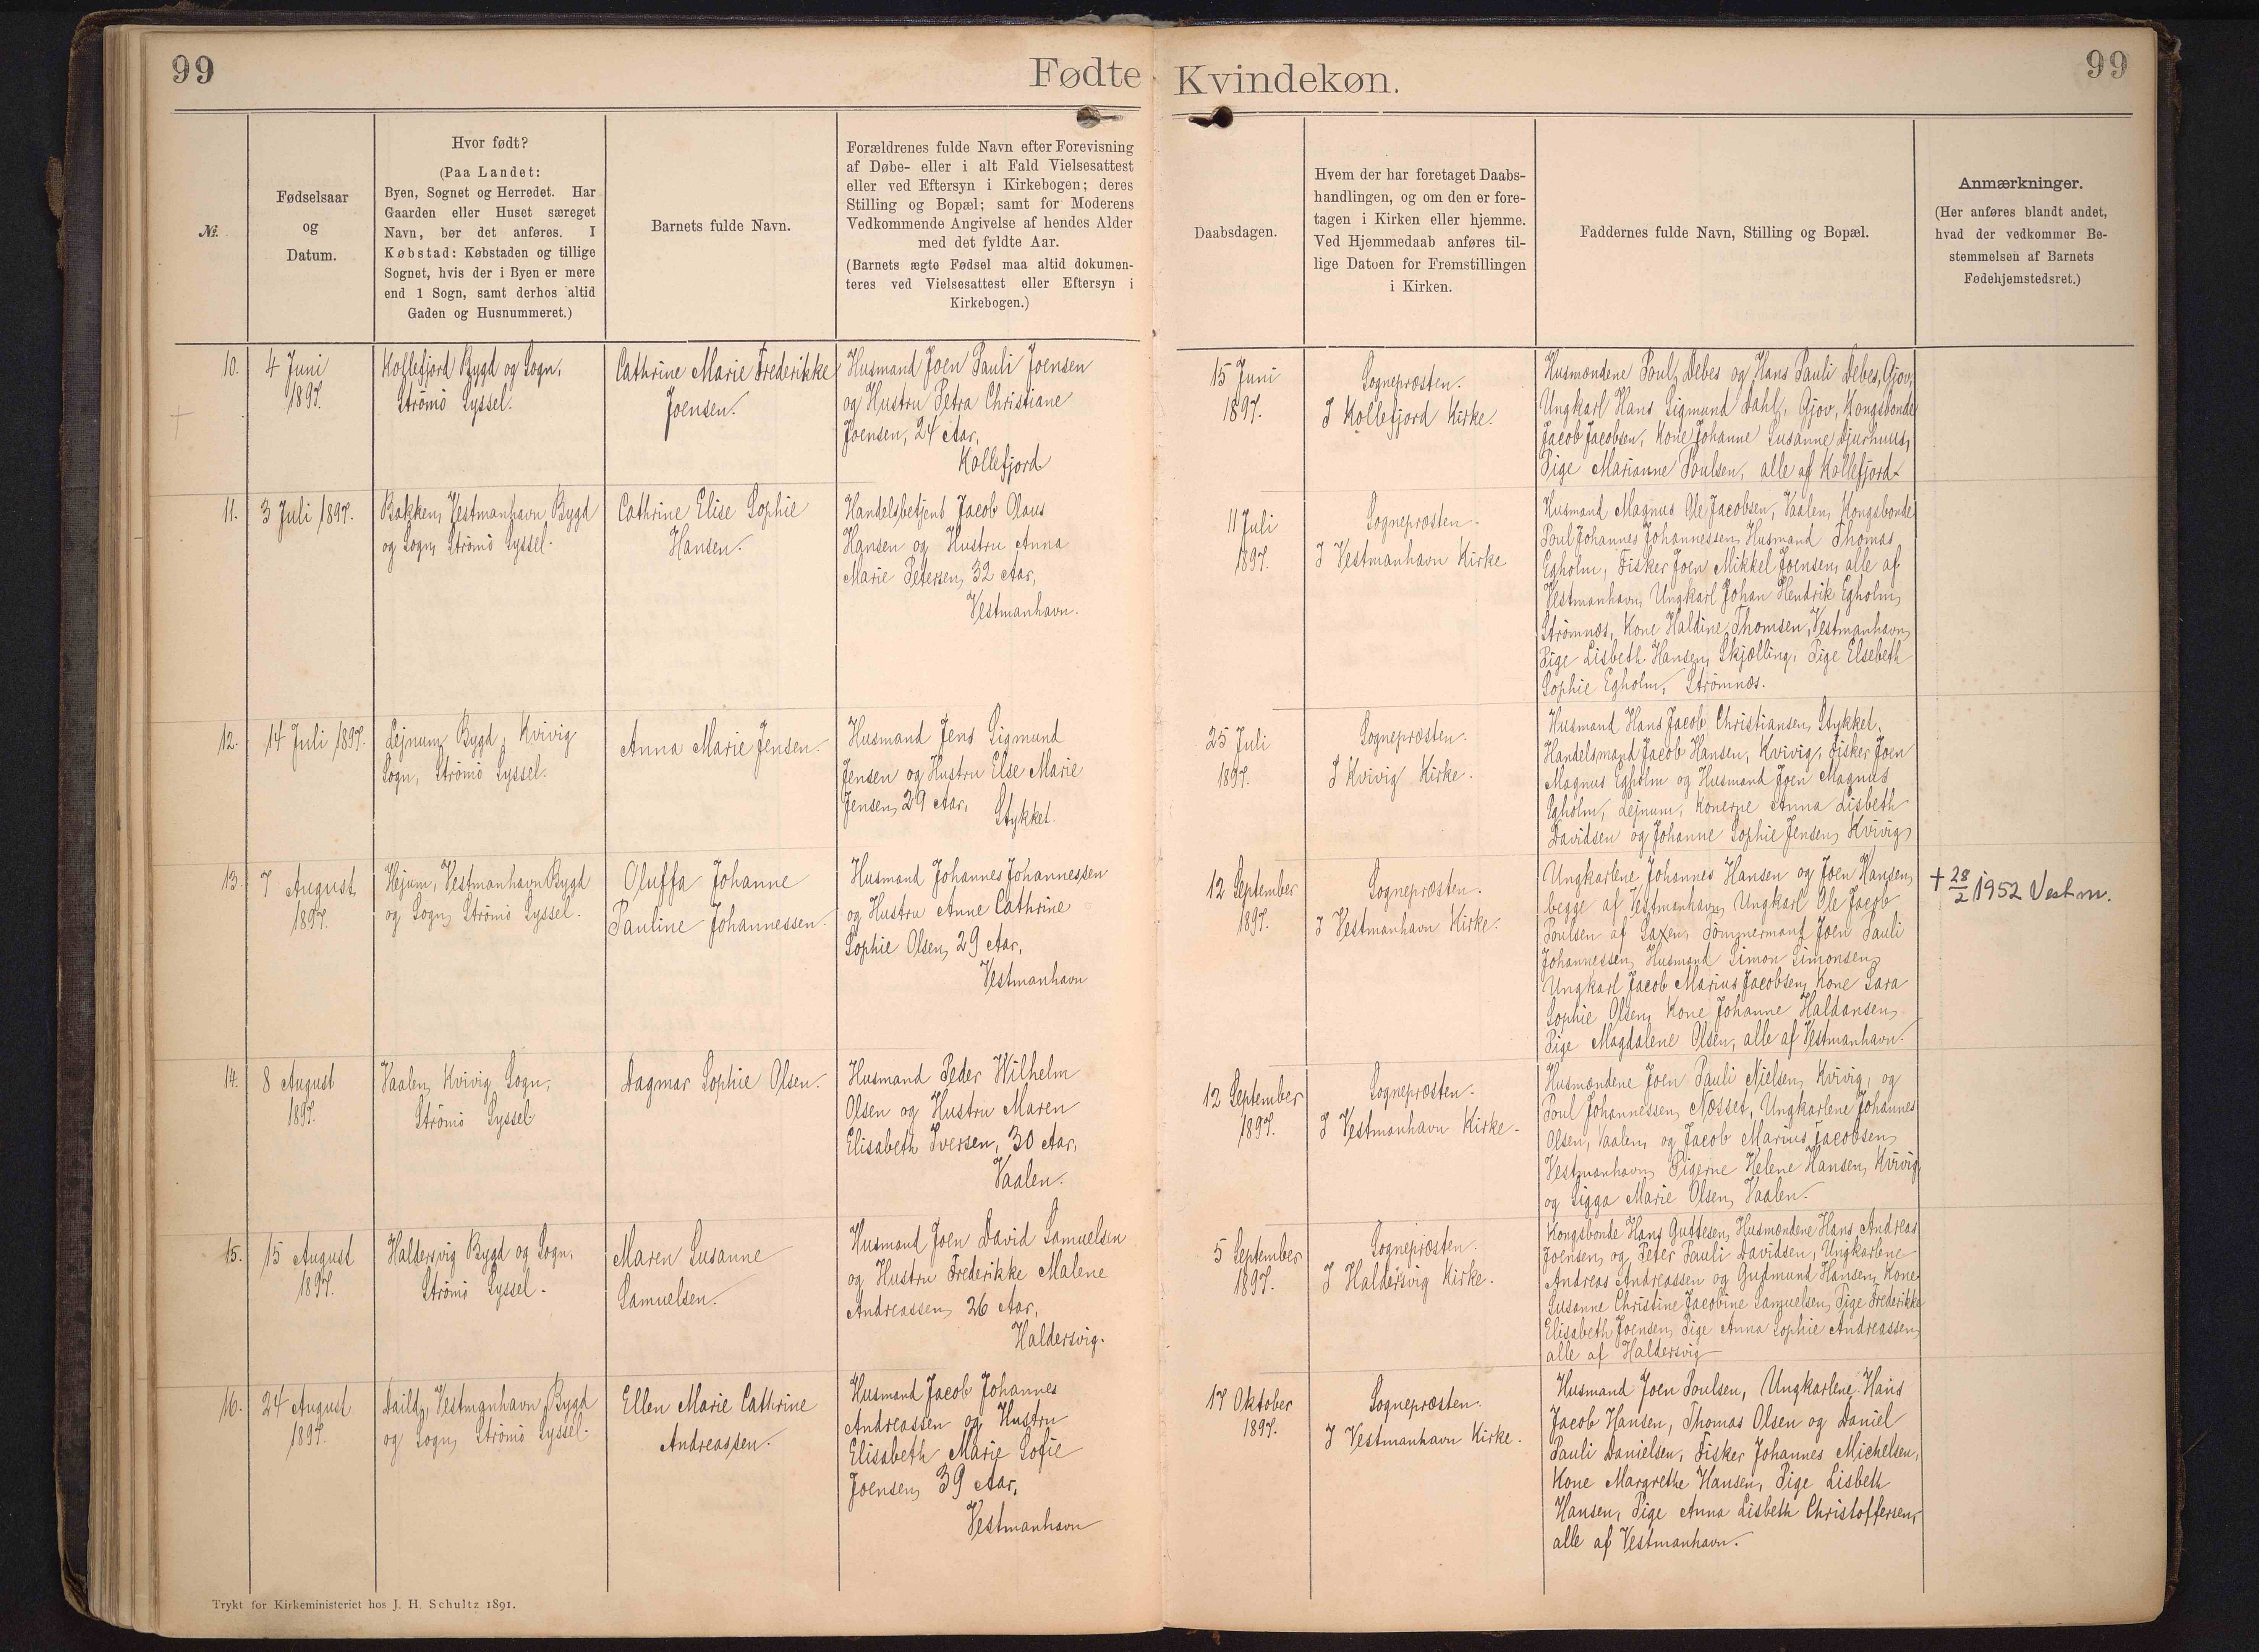 99
Fødte Kvindekøn.
99
№.
Fødselsaar
og
Datum.
Hvor født?
(Paa Landet:
Byen, Sognet og Herredet. Har
Gaarden eller Huset særeget
Navn, bør det anføres. I
Købstad: Købstaden og tillige
Sognet, hvis der i Byen er mere
end 1 Sogn, samt derhos altid
Gaden og Husnummeret.)
Barnets fulde Navn.
Forældrenes fulde Navn efter Forevisning
af Døbe- eller i alt Fald Vielsesattest
eller ved Eftersyn i Kirkebogen; deres
Stilling og Bopæl; samt for Moderens
Vedkommende Angivelse af hendes Alder
med det fyldte Aar.
(Barnets ægte Fødsel maa altid dokumen-
teres ved Vielsesattest eller Eftersyn i
Kirkebogen.)
Daabsdagen.
Hvem der har foretaget Daabs-
handlingen, og om den er fore-
tagen i Kirken eller hjemme.
Ved Hjemmedaab anføres til-
lige Datoen for Fremstillingen
i Kirken.
Faddernes fulde Navn, Stilling og Bopæl.
Anmærkninger.
(Her anføres blandt andet,
hvad der vedkommer Be-
stemmelsen af Barnets
Fødehjemstedsret.)
10.
4 Juni
1897.
Kollefjord Bygd og Sogn,
Strömö Syssel.
Cathrine Marie Frederikke
Joensen.
Husmand Joen Pauli Joensen
og Hustru Petra Christiane
Joensen, 24 Aar,
Kollefjord
15 Juni
1897.
Sognepræsten.
I Kollefjord Kirke.
Husmændene Poul Debes og Hans Pauli Debes, Gjov,
Ungkarl Hans Sigmund Dahl, Gjov, Kongsbonde
Jacob Jacobsen, Kone Johanne Susanne Djurhuus,
Pige Marianne Poulsen, alle af Kollefjord.
11.
3 Juli 1897.
Bakken, Vestmanhavn Bygd
og Sogn, Strömö Syssel.
Cathrine Elise Sophie
Hansen.
Handelsbetjent Jacob Olaus
Hansen og Hustru Anna
Marie Petersen, 32 Aar,
Vestmanhavn.
11 Juli
1897.
Sognepræsten.
I Vestmanhavn Kirke
Husmand Magnus Ole Jacobsen, Vaalen, Kongsbonde
Poul Johannes Johannessen, Husmand Thomas
Egholm, Fisker Joen Mikkel Joensen, alle af
Vestmanhavn, Ungkarl Johan Hendrik Egholm,
Strömnæs, Kone Haldine Thomsen, Vestmanhavn,
Pige Lisbeth Hansen, Skjælling, Pige Elsebeth
Sophie Egholm, Strömnæs.
12.
14 Juli 1897.
Lejnum Bygd, Kvivig
Sogn, Strömö Syssel.
Anna Marie Jensen.
Husmand Jens Sigmund
Jensen og Hustru Else Marie
Jensen, 29 Aar,
Stykket.
25 Juli
1897.
Sognepræsten.
I Kvivig Kirke.
Husmand Hans Jacob Christiansen, Stykket,
Handelsmand Jacob Hansen, Kvivig, Fisker Joen
Magnus Egholm og Husmand Joen Magnus
Egholm, Lejnum, Konerne Anna Lisbeth
Davidsen og Johanne Sophie Jensen, Kvivig,
13.
7 August
1897.
Hejum, Vestmanhavn Bygd
og Sogn, Strömö Syssel.
Oluffa Johanne
Pauline Johannessen.
Husmand Johannes Johannessen
og Hustru Anne Cathrine
Sophie Olsen, 29 Aar,
Vestmanhavn
12 September
1897.
Sognepræsten.
I Vestmanhavn Kirke.
Ungkarlene Johannes Hansen og Joen Hansen,
begge af Vestmanhavn, Ungkarl Ole Jacob
Poulsen af Saxen, Tömmermand Joen Pauli
Johannessen, Husmand Simon Simonsen,
Ungkarl Jacob Marius Jacobsen, Kone Sara
Sophie Olsen, Kone Johanne Haldansen,
Pige Magdalene Olsen, alle af Vestmanhavn.
+ 28/2 1952 Vestm.
14.
8 August
1897.
Vaalen, Kvivig Sogn,
Strömö Syssel
Dagmar Sophie Olsen.
Husmand Peder Wilhelm
Olsen og Hustru Maren
Elisabeth Iversen, 30 Aar,
Vaalen.
12 September
1897.
Sognepræsten.
I Vestmanhavn Kirke.
Husmændene Joen Pauli Nielsen, Kvivig, og
Poul Johannessen, Næsset, Ungkarlene Johannes
Olsen, Vaalen, og Jacob Marius Jacobsen,
Vestmanhavn, Pigerne Helene Hansen, Kvivig,
og Sigga Marie Olsen, Vaalen.
15.
15 August
1897.
Haldersvig Bygd og Sogn,
Strömö Syssel.
Maren Susanne
Samuelsen.
Husmand Joen David Samuelsen
og Hustru Frederikke Malene
Andreassen, 26 Aar,
Haldersvig.
5 September
1897.
Sognepræsten.
I Haldersvig Kirke.
Kongsbonde Hans Guttesen, Husmændene Hans Andreas
Joensen, og Peter Pauli Davidsen, Ungkarlene
Andreas Andreassen og Gudmund Hansen, Kone
Susanne Christine Jacobine Samuelsen, Pige Frederikke
Elisabeth Joensen, Pige Anna Sophie Andreassen,
alle af Haldersvig
16.
24 August
1897.
Daild, Vestmanhavn Bygd
og Sogn, Strömö Syssel.
Ellen Marie Cathrine
Andreassen.
Husmand Jacob Johannes
Andreassen og Hustru
Elisabeth Marie Sofie
Joensen, 39 Aar,
Vestmanhavn
17 Oktober
1897.
Sognepræsten.
I Vestmanhavn Kirke.
Husmand Joen Poulsen, Ungkarlene Hans
Jacob Hansen, Thomas Olsen og Daniel
Pauli Danielsen, Fisker Johannes Michelsen,
Kone Margrethe Hansen, Pige Lisbeth
Hansen, Pige Anna Lisbeth Christoffersen,
alle af Vestmanhavn.
Trykt for Kirkeministeriet hos J. H. Schultz 1891.